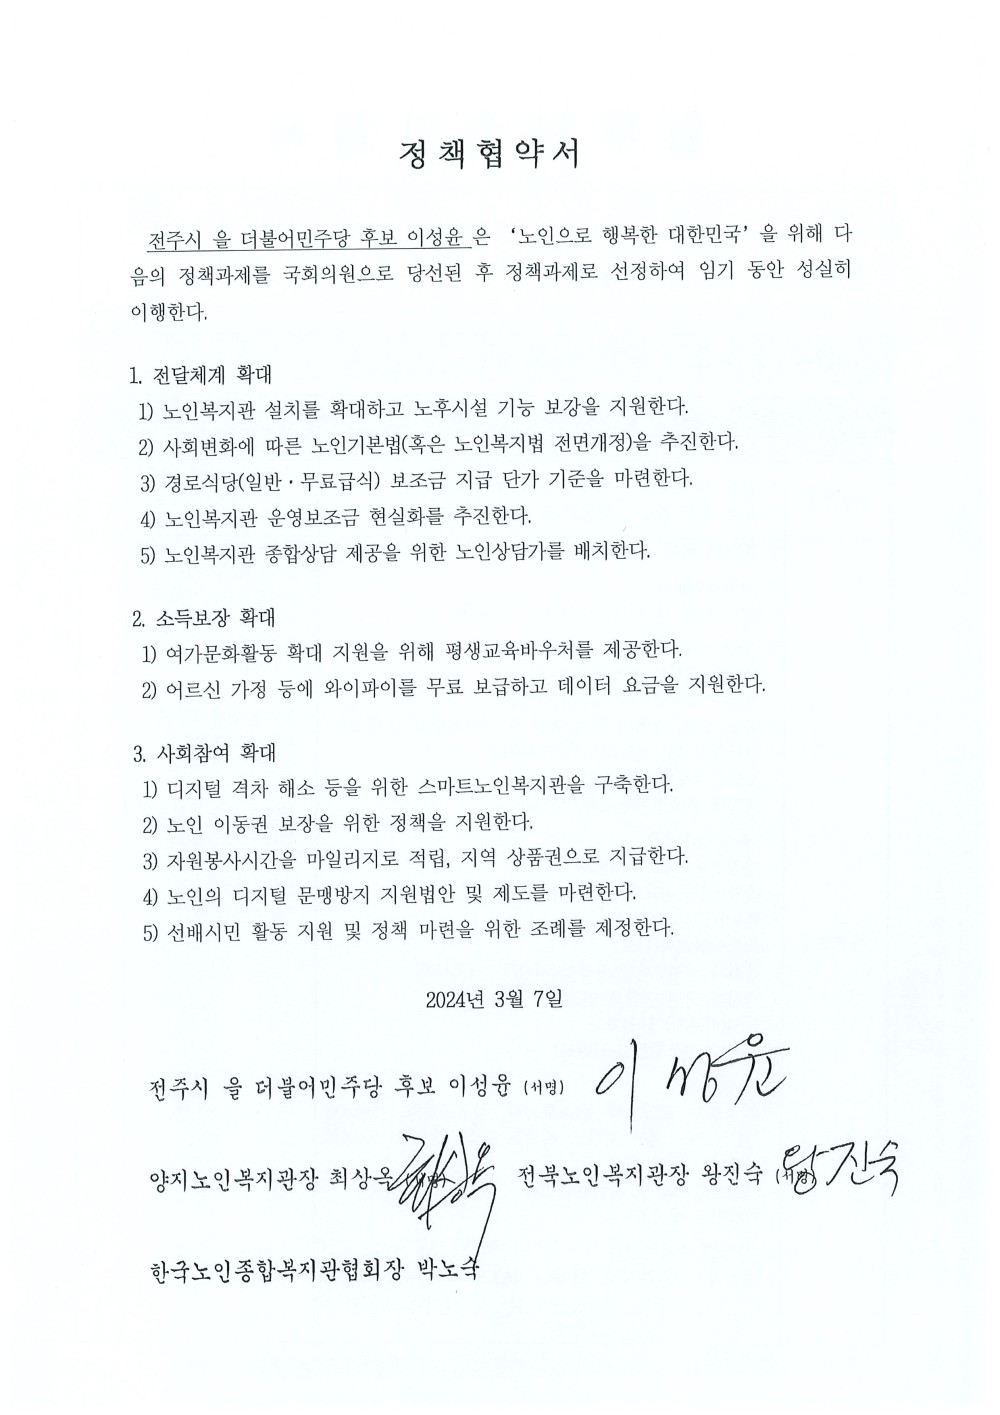 정책협약서
전주시 을 더불어민주당 후보 이성윤 은 '노인으로 행복한 대한민국' 을 위해 다
음의 정책과제를 국회의원으로 당선된 후 정책과제로 선정하여 임기 동안 성실히
이행한다.
1. 전달체계 확대
1) 노인복지관 설치를 확대하고 노후시설 기능 보강을 지원한다.
2) 사회변화에 따른 노인기본법(혹은 노인복지법 전면개정)을 추진한다.
3) 경로식당(일반·무료급식) 보조금 지급 단가 기준을 마련한다.
4) 노인복지관 운영보조금 현실화를 추진한다.
5) 노인복지관 종합상담 제공을 위한 노인상담가를 배치한다.
2. 소득보장 확대
1) 여가문화활동 확대 지원을 위해 평생교육바우처를 제공한다.
2) 어르신 가정 등에 와이파이를 무료 보급하고 데이터 요금을 지원한다.
3. 사회참여 확대
1) 디지털 격차 해소 등을 위한 스마트노인복지관을 구축한다.
2) 노인 이동권 보장을 위한 정책을 지원한다.
3) 자원봉사시간을 마일리지로 적립, 지역 상품권으로 지급한다.
4) 노인의 디지털 문맹방지 지원법안 및 제도를 마련한다.
5) 선배시민 활동 지원 및 정책 마련을 위한 조례를 제정한다.
2024년 3월 7일
전주시 을 더불어민주당 후보 이성윤 (서명) 이성윤
양지노인복지관장 최상옥 (서명) 최상옥 전북노인복지관장 왕진숙 (서명) 왕진숙
한국노인종합복지관협회장 박노숙